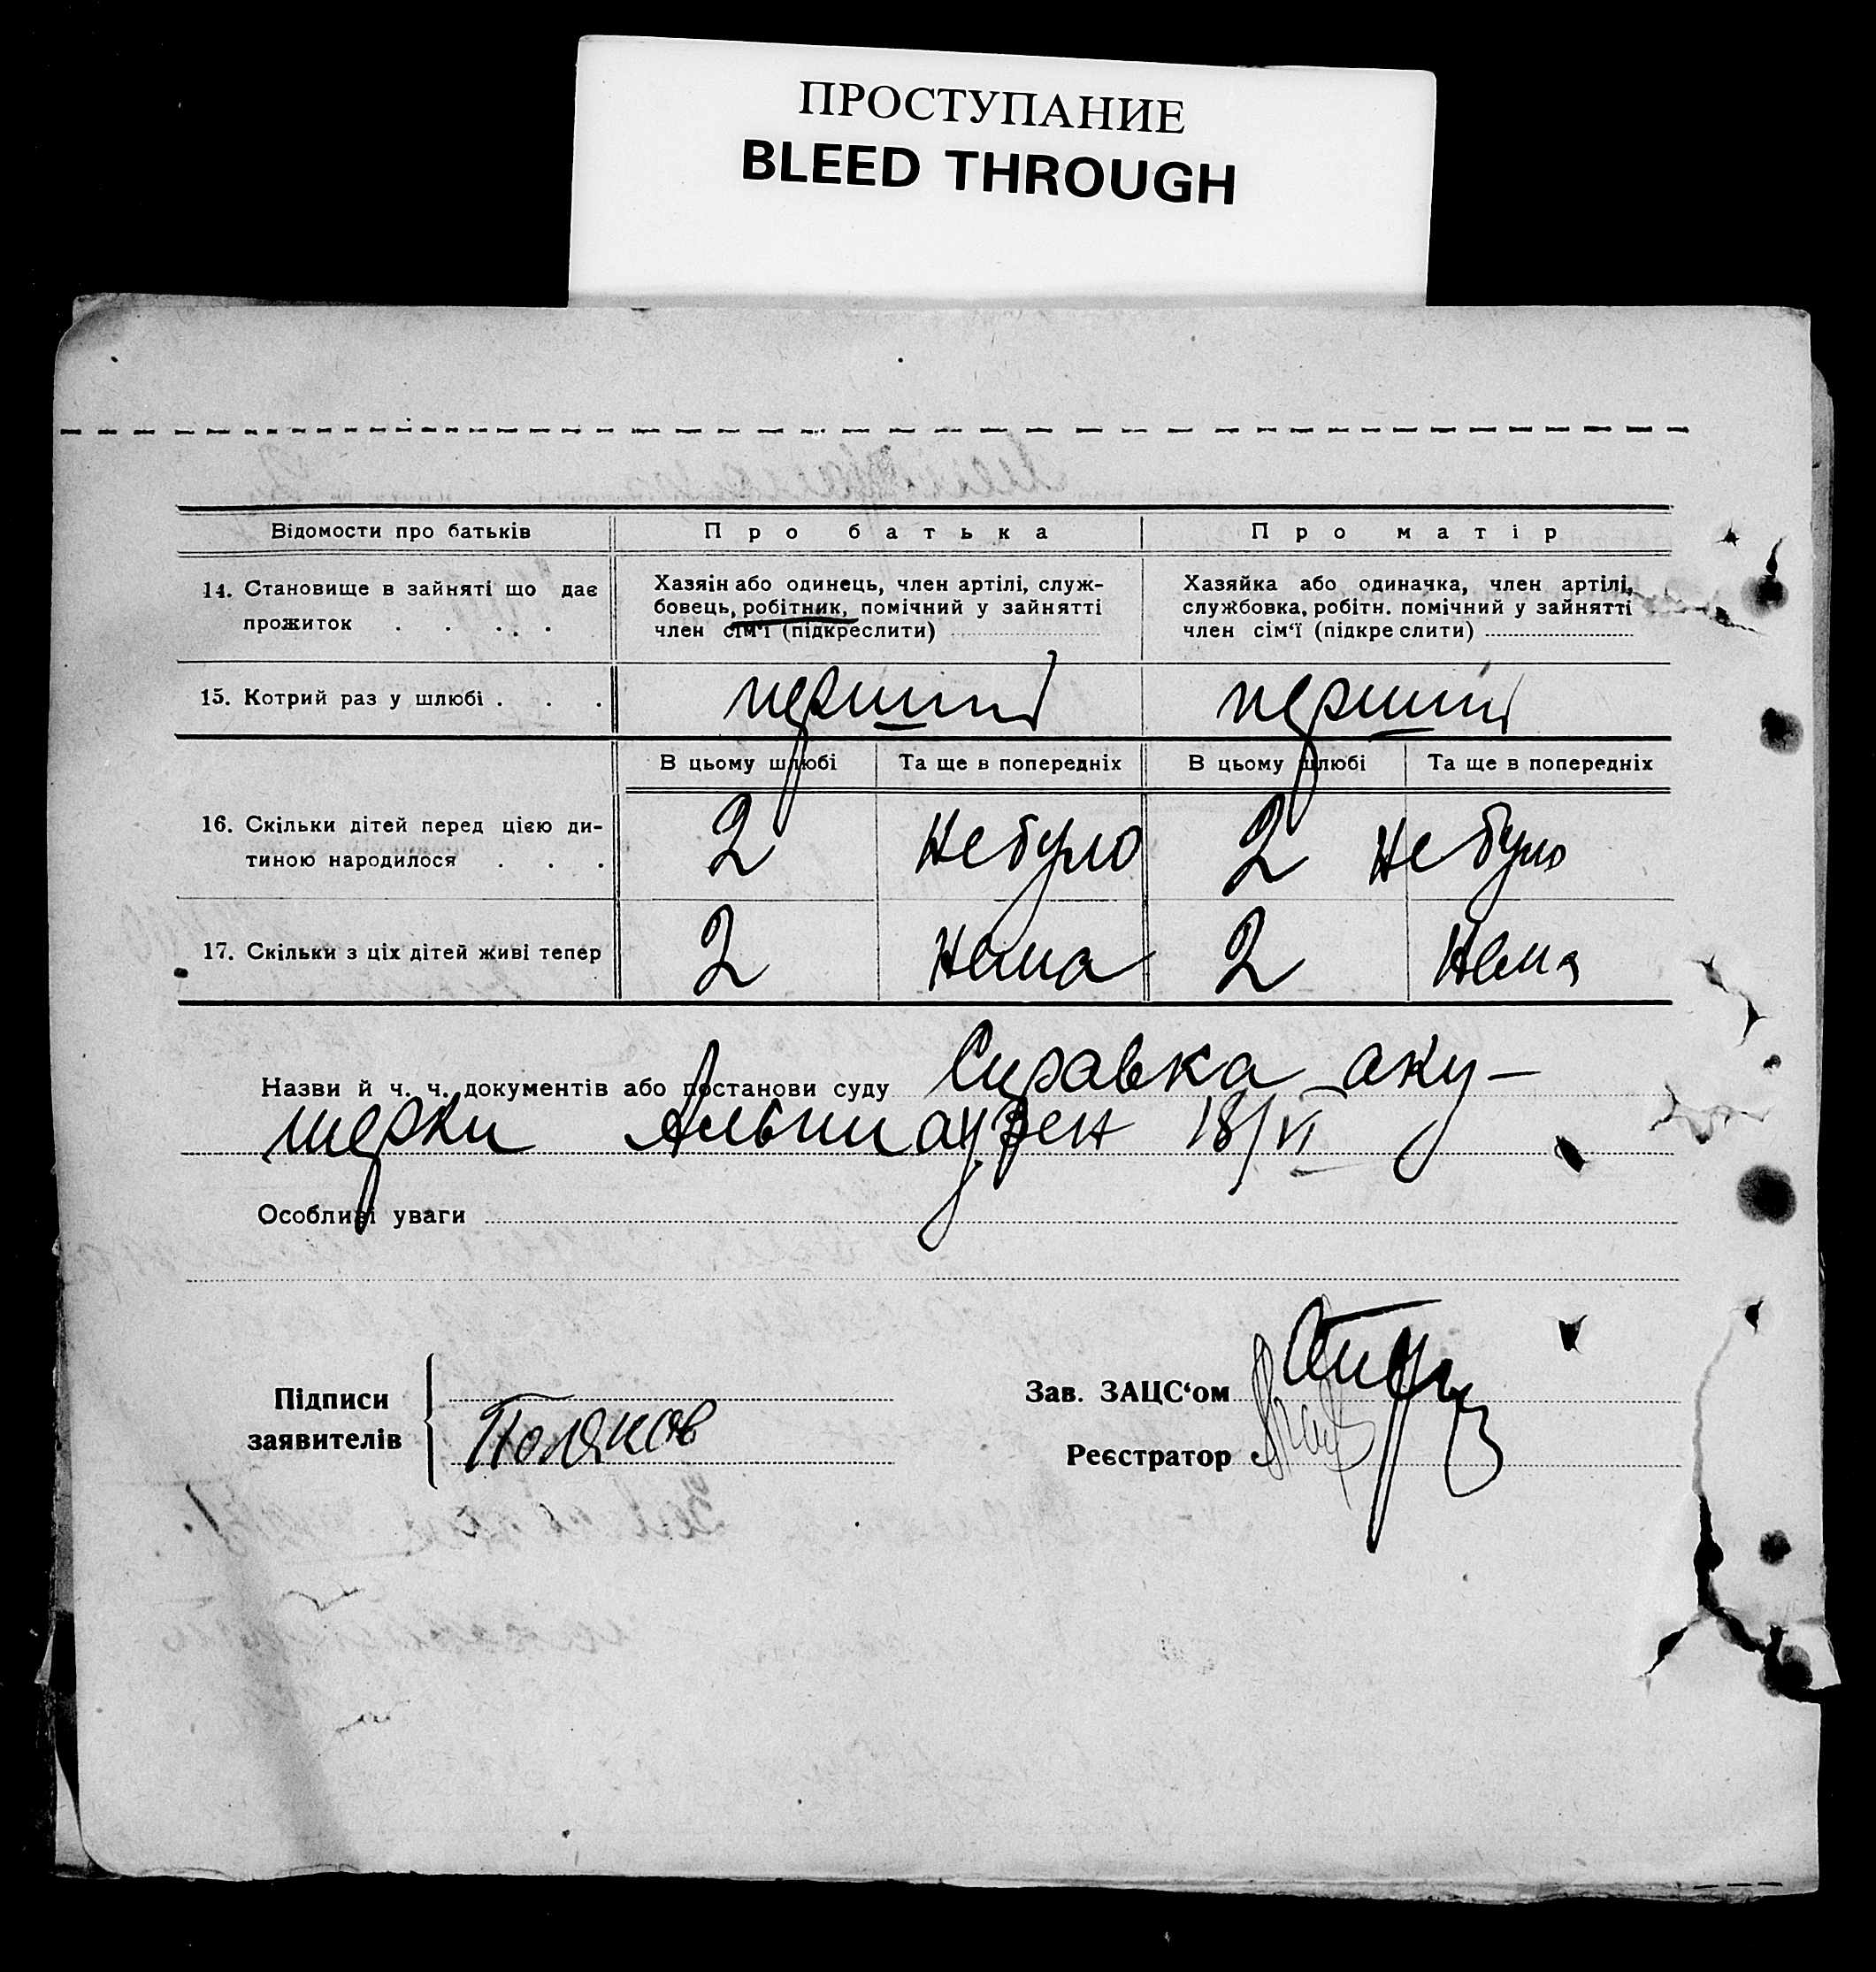 ПРОСТУПАНИЕ
BLEED THROUGH
Відомости про батьків
Про батька
Про матір
14. Становище в зайняті що дає
прожиток . . . . .
Хазяїн або одинець, член артілі, служ-
бовець, робітник, помічний у зайнятті
член сім‘ї (підкреслити)
Хазяйка або одиначка, член артілі,
службовка, робітн. помічний у зайнятті
член сім‘ї (підкреслити)
15. Котрий раз у шлюбі . . .
перший
перший
В цьому шлюбі
Та ще в попередніх
В цьому шлюбі
Та ще в попередніх
16. Скільки дітей перед цією ди-
тиною народилося . . .
2
Не було
2
Не було
17. Скільки з ціх дітей живі тепер
2
Нема
2
Нема
Назви й ч. ч. документів або постанови суду Справка аку-
шерки 18/VI
Особливі уваги
Підписи
заявителів
Поляков
Зав. ЗАЦС‘ом
Реєстратор